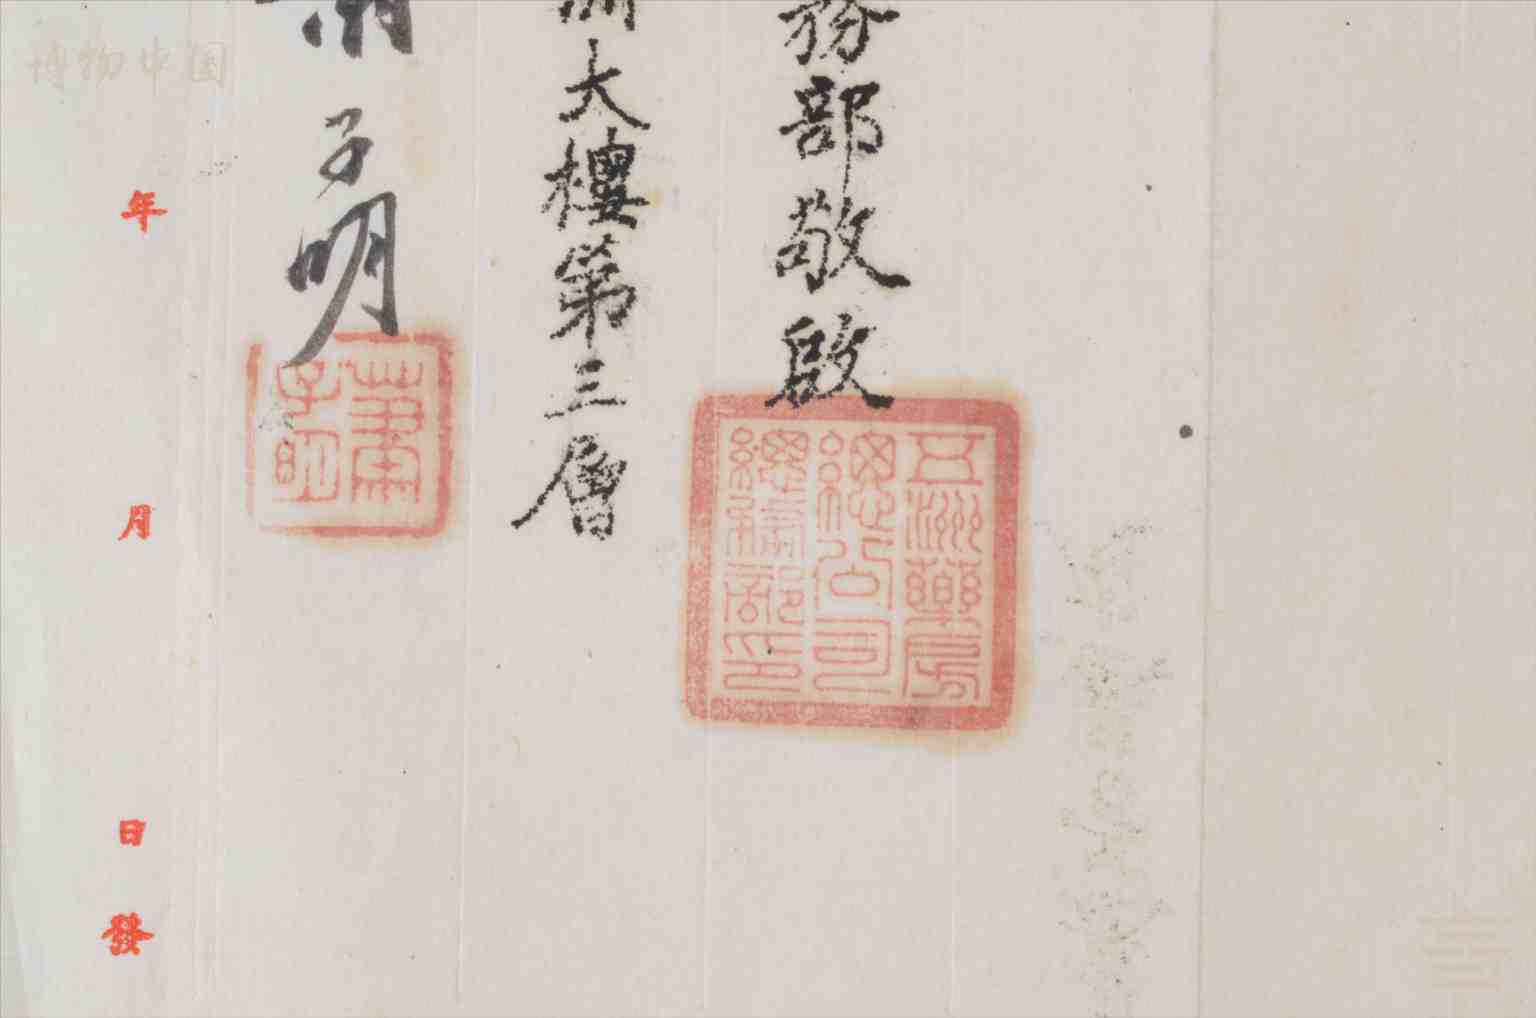 博物中国
務部敬啟
洲大樓第三層
子明
年月日發
五洲藥房
總公司
蕭
子明